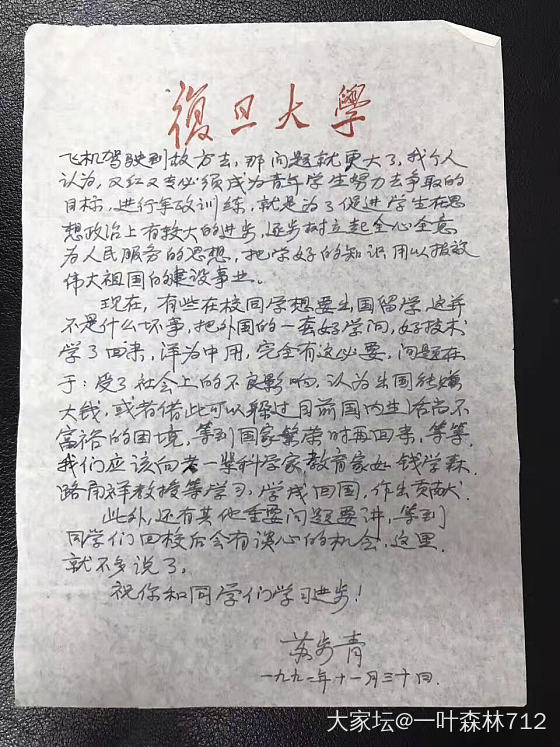 復旦大學
飞机驾驶到敌方去，那问题就更大了，我个人
认为，又红又专必须成为青年学生努力去争取的
目标，进行军政训练，就是为了促进学生在思
想政治上有较大的进步，逐步树立起全心全意
为人民服务的思想，把学好的知识用以报效
伟大祖国的建设事业。
现在，有些在校同学想要出国留学，这并
不是什么坏事，把外国的一套好学问，好技术
学了回来，洋为中用，完全有这必要，问题在
于：受了社会上的不良影响，认为出国能赚
大钱，或者借此可以躲过目前国内生活尚不
富裕的困境，等到国家繁荣时再回来，等等。
我们应该向老一辈科学家教育家如钱学森、
路甬祥教授等学习，学成回国，作出贡献。
此外，还有其他重要问题要讲，等到
同学们回校后会有谈心的机会，这里
就不多说了。
祝你和同学们学习进步！
苏步青
一九九一年十一月三十日.
大家坛@一叶森林712